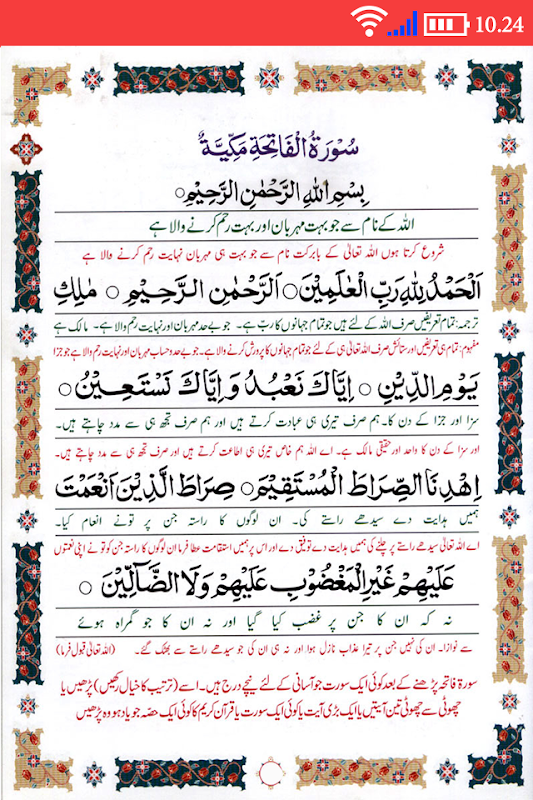 10.24
سُوْرَةُ الْفَاتِحَةِ مَكِّيَّةٌ
بِسْمِ اللهِ الرَّحْمٰنِ الرَّحِيْمِ ○
اللہ کے نام سے جو بہت مہربان اور بہت رحم کرنے والا ہے
شروع کرتا ہوں اللہ تعالیٰ کے بابرکت نام سے جو بہت ہی مہربان نہایت رحم کرنے والا ہے
اَلْحَمْدُ لِلّٰهِ رَبِّ الْعٰلَمِيْنَ ○ اَلرَّحْمٰنِ الرَّحِيْمِ ○ مٰلِكِ
ترجمہ: تمام تعریفیں صرف اللہ کے لئے ہیں جو تمام جہانوں کا ربّ ہے۔ جو بے حد مہربان اور نہایت رحم والا ہے۔ مالک ہے
مفہوم: تمام ہی تعریفیں اور ستائش صرف اللہ تعالیٰ ہی کے لئے جو تمام جہانوں کا پرورش کرنے والا ہے۔ جو بے حد و حساب مہربان اور نہایت رحم والا ہے جو جزا
يَوْمِ الدِّيْنِ ○ اِيَّاكَ نَعْبُدُ وَ اِيَّاكَ نَسْتَعِيْنُ ○
سزا اور جزا کے دن کا۔ ہم صرف تیری ہی عبادت کرتے ہیں اور ہم صرف تجھ ہی سے مدد چاہتے ہیں۔
اور سزا کے دن کا واحد اور حقیقی مالک ہے۔ اے اللہ ہم خاص تیری ہی اطاعت کرتے ہیں اور صرف تجھ ہی سے مدد چاہتے ہیں۔
اِهْدِنَا الصِّرَاطَ الْمُسْتَقِيْمَ ○ صِرَاطَ الَّذِيْنَ اَنْعَمْتَ
ہمیں ہدایت دے سیدھے راستے کی۔ ان لوگوں کا راستہ جن پر تونے انعام کیا۔
اے اللہ تعالیٰ سیدھے راستے پر چلنے کی ہمیں ہدایت دے توفیق دے اور اس پر ہمیں استقامت عطا فرما ان لوگوں کا راستہ جن کو تونے اپنی نعمتوں
عَلَيْهِمْ غَيْرِ الْمَغْضُوْبِ عَلَيْهِمْ وَلَا الضَّآلِّيْنَ ○
نہ کہ ان کا جن پر غضب کیا گیا اور نہ ان کا جو گمراہ ہوئے
سے نوازا۔ ان کی نہیں جن پر تیرا عذاب نازل ہوا اور نہ ہی ان کی جو سیدھے راستے سے بھٹک گئے۔ (اللہ تعالیٰ قبول فرما)
سورۃ فاتحہ پڑھنے کے بعد کوئی ایک سورت جو آسانی کے لئے نیچے درج ہیں۔ اسے (ترتیب کا خیال رکھیں) پڑھیں یا
چھوٹی سے چھوٹی تین آیتیں یا ایک بڑی آیت یا کوئی ایک سورت یا قرآن کریم کا کوئی ایک حصہ جو یاد ہو وہ پڑھیں